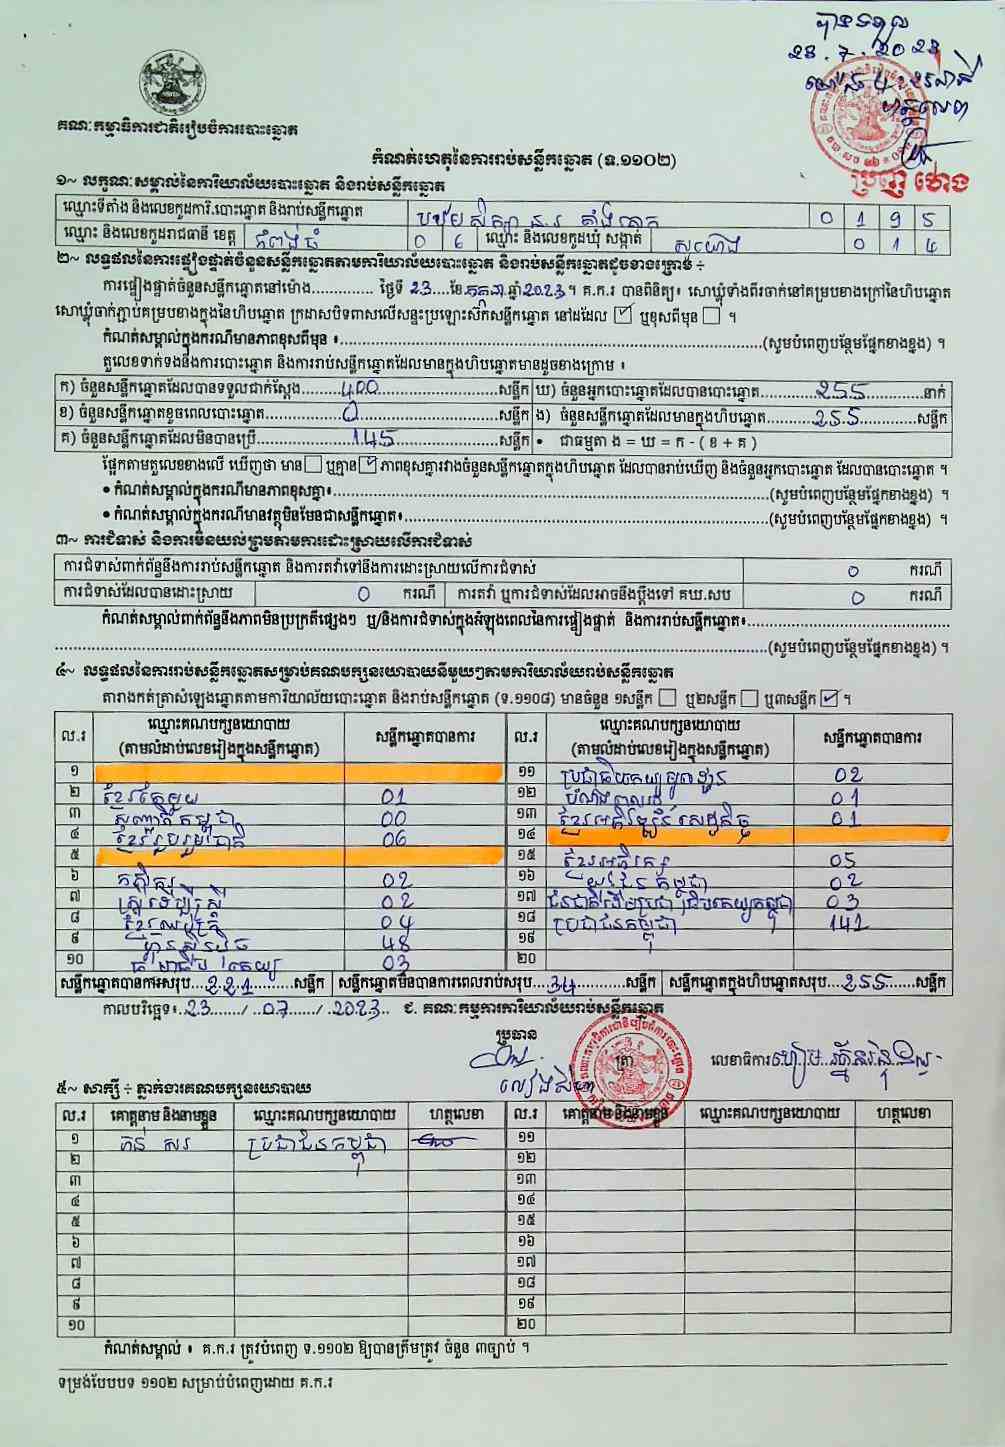 បានទទួល
គណៈកម្មាធិការជាតិរៀបចំការបោះឆ្នោត
កំណត់ហេតុនៃការរាប់សន្លឹកឆ្នោត (ទ.១១០២)
១~ លក្ខណៈសម្គាល់នៃការិយាល័យបោះឆ្នោត និងរាប់សន្លឹកឆ្នោត
ឈ្មោះទីតាំង និងលេខកូដការិ.បោះឆ្នោត និងរាប់សន្លឹកឆ្នោត 0 1 9 5
ឈ្មោះ និងលេខកូដរាជធានី ខេត្ត កំពង់ធំ 0 6 ឈ្មោះ និងលេខកូដឃុំ សង្កាត់ 0 1 4
២~ លទ្ធផលនៃការផ្ទៀងផ្ទាត់ចំនួនសន្លឹកឆ្នោតតាមការិយាល័យបោះឆ្នោត និងរាប់សន្លឹកឆ្នោតដូចខាងក្រោម ÷
ការផ្ទៀងផ្ទាត់ចំនួនសន្លឹកឆ្នោតនៅម៉ោង.............. ថ្ងៃទី 23 ....ខែ កក្កដា ឆ្នាំ 2023 ។ គ.ក.រ បានពិនិត្យ៖ សោឃ្លុំទាំងពីរចាក់នៅគម្របខាងក្រៅនៃហិបឆ្នោត
សោឃ្លុំចាក់ភ្ជាប់គម្របខាងក្នុងនៃហិបឆ្នោត ក្រដាសបិទពាសលើសន្ទះប្រឡោះសឹកសន្លឹកឆ្នោត នៅដដែល ☑ ឬខុសពីមុន ☐ ។
កំណត់សម្គាល់ក្នុងករណីមានភាពខុសពីមុន ៖..............(សូមបំពេញបន្ថែមផ្នែកខាងខ្នង) ។
តួលេខទាក់ទងនឹងការបោះឆ្នោត និងការរាប់សន្លឹកឆ្នោតដែលមានក្នុងហិបឆ្នោតមានដូចខាងក្រោម ៖
ក) ចំនួនសន្លឹកឆ្នោតដែលបានទទួលជាក់ស្ដែង........400........សន្លឹក ឃ) ចំនួនអ្នកបោះឆ្នោតដែលបានបោះឆ្នោត........255........នាក់
ខ) ចំនួនសន្លឹកឆ្នោតខូចពេលបោះឆ្នោត........0........សន្លឹក ង) ចំនួនសន្លឹកឆ្នោតដែលមានក្នុងហិបឆ្នោត........255........សន្លឹក
គ) ចំនួនសន្លឹកឆ្នោតដែលមិនបានប្រើ........145........សន្លឹក • ជាធម្មតា ង = ឃ = ក - ( ខ + គ )
ផ្អែកតាមតួលេខខាងលើ ឃើញថា មាន ☐ ឬគ្មាន ☑ ភាពខុសគ្នារវាងចំនួនសន្លឹកឆ្នោតក្នុងហិបឆ្នោត ដែលបានរាប់ឃើញ និងចំនួនអ្នកបោះឆ្នោត ដែលបានបោះឆ្នោត ។
• កំណត់សម្គាល់ក្នុងករណីមានភាពខុសគ្នា៖..............(សូមបំពេញបន្ថែមផ្នែកខាងខ្នង) ។
• កំណត់សម្គាល់ក្នុងករណីមានវត្ថុមិនមែនជាសន្លឹកឆ្នោត៖..............(សូមបំពេញបន្ថែមផ្នែកខាងខ្នង) ។
៣~ ការជំទាស់ និងការមិនយល់ព្រមតាមការដោះស្រាយលើការជំទាស់
ការជំទាស់ពាក់ព័ន្ធនឹងការរាប់សន្លឹកឆ្នោត និងការតវ៉ាទៅនឹងការដោះស្រាយលើការជំទាស់ 0 ករណី
ការជំទាស់ដែលបានដោះស្រាយ 0 ករណី ការតវ៉ា ឬការជំទាស់ដែលអាចនឹងប្ដឹងទៅ គឃ.សប 0 ករណី
កំណត់សម្គាល់ពាក់ព័ន្ធនឹងភាពមិនប្រក្រតីផ្សេងៗ ឬ/និងការជំទាស់ក្នុងអំឡុងពេលនៃការផ្ទៀងផ្ទាត់ និងការរាប់សន្លឹកឆ្នោត៖..............
..............(សូមបំពេញបន្ថែមផ្នែកខាងខ្នង) ។
៤~ លទ្ធផលនៃការរាប់សន្លឹកឆ្នោតសម្រាប់គណបក្សនយោបាយនីមួយៗតាមការិយាល័យរាប់សន្លឹកឆ្នោត
តារាងកត់ត្រាសំឡេងឆ្នោតតាមការិយាល័យបោះឆ្នោត និងរាប់សន្លឹកឆ្នោត (ទ.១១០៨) មានចំនួន ១សន្លឹក ☐ ឬ២សន្លឹក ☐ ឬ៣សន្លឹក ☑ ។
ល.រ ឈ្មោះគណបក្សនយោបាយ (តាមលំដាប់លេខរៀងក្នុងសន្លឹកឆ្នោត) សន្លឹកឆ្នោតបានការ ល.រ ឈ្មោះគណបក្សនយោបាយ (តាមលំដាប់លេខរៀងក្នុងសន្លឹកឆ្នោត) សន្លឹកឆ្នោតបានការ
១ ១១ ប្រជាធិបតេយ្យមូលដ្ឋាន 02
២ ខ្មែរតែមួយ 01 ១២ 01
៣ សញ្ជាតិកម្ពុជា 00 ១៣ ខ្មែរអភិវឌ្ឍន៍សេដ្ឋកិច្ច 01
៤ ខ្មែររួបរួមជាតិ 06 ១៤
៥ ១៥ ខ្មែរអភិរក្ស 05
៦ កសិករ 02 ១៦ យុវជនកម្ពុជា 02
៧ ស្ត្រីដើម្បីស្ត្រី 02 ១៧ ជនជាតិដើមប្រជាធិបតេយ្យកម្ពុជា 03
៨ ខ្មែរឈប់ក្រ 04 ១៨ ប្រជាជនកម្ពុជា 141
៩ ហ៊្វុនស៊ិនប៉ិច 48 ១៩
១០ 03 ២០
សន្លឹកឆ្នោតបានការសរុប...221...សន្លឹក សន្លឹកឆ្នោតមិនបានការពេលរាប់សរុប...34...សន្លឹក សន្លឹកឆ្នោតក្នុងហិបឆ្នោតសរុប...255...សន្លឹក
កាលបរិច្ឆេទ៖..23....../..07....../..2023.. ជ. គណៈកម្មការការិយាល័យរាប់សន្លឹកឆ្នោត
ប្រធាន
ត្រា
លេខាធិការ
៥~ សាក្សី ÷ ភ្នាក់ងារគណបក្សនយោបាយ
ល.រ គោត្តនាម និងនាមខ្លួន ឈ្មោះគណបក្សនយោបាយ ហត្ថលេខា ល.រ គោត្តនាម និងនាមខ្លួន ឈ្មោះគណបក្សនយោបាយ ហត្ថលេខា
១ ប្រជាជនកម្ពុជា ១១
២ ១២
៣ ១៣
៤ ១៤
៥ ១៥
៦ ១៦
៧ ១៧
៨ ១៨
៩ ១៩
១០ ២០
កំណត់សម្គាល់ ៖ គ.ក.រ ត្រូវបំពេញ ទ.១១០២ ឱ្យបានត្រឹមត្រូវ ចំនួន ៣ច្បាប់ ។
ទម្រង់បែបបទ ១១០២ សម្រាប់បំពេញដោយ គ.ក.រ